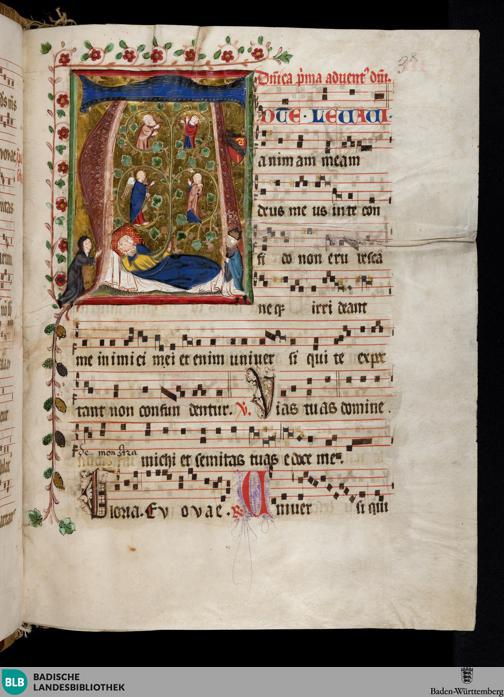 Dn̄ica p̄ma aduent⁹ dn̄i.
A DTE · LEUAUI ·
animam meam
deus me us in te con
fi do non eru besca
neqꝫ irri deant
me inimici mei et enim univer si qui te expec
tant non confun dentur. V. Vias tuas domine
de monstra
michi et semitas tuas edoce me.
Gloria. Ev ovae. R Univer si qui
BLB BADISCHE
LANDESBIBLIOTHEK
Baden-Württemberg